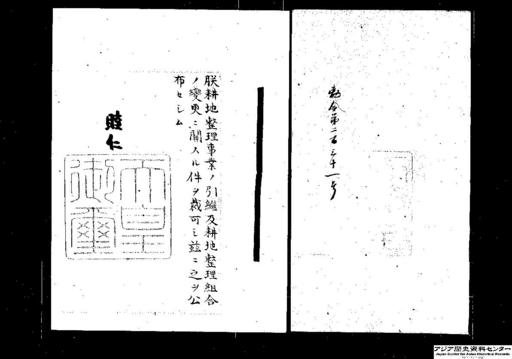 勅令第二百三十一号
朕耕地整理事業ノ引継及耕地整理組合
ノ変更ニ関スル件ヲ裁可シ茲ニ之ヲ公
布セシム
睦仁
天皇
御璽
アジア歴史資料センター
Japan Center for Asian Historical Records